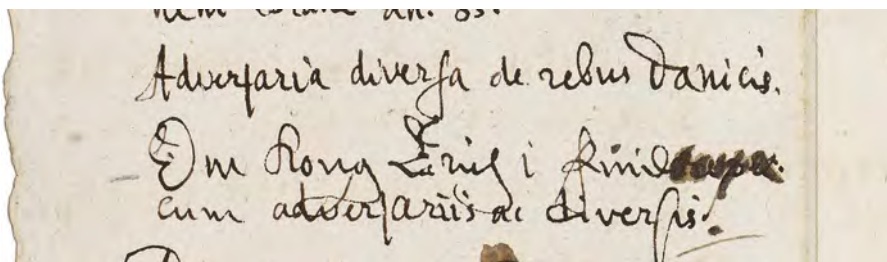 an: 85.
Adversaria diversa de rebus Danicis.
Om Kong Erich i
cum adversariis ac diversis.